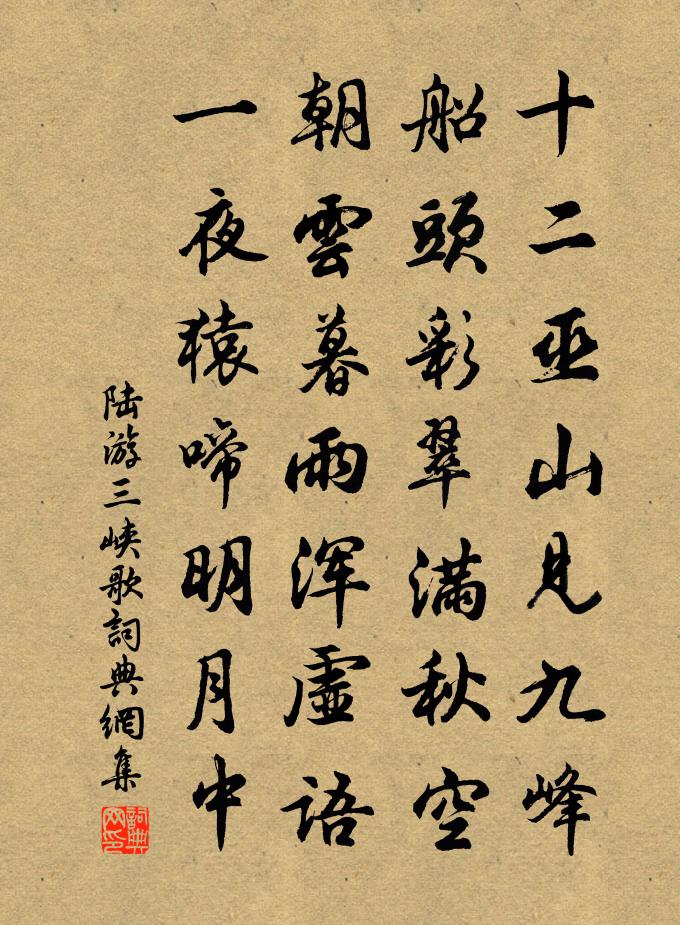 十二巫山見九峰
船頭彩翠滿秋空
朝雲暮雨浑虛語
一夜猿啼明月中
陆游三峡歌詞典網集
詞典网印